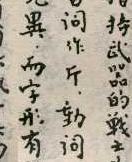 指持武器的戰士
詞作斤，動詞
異，而字形有